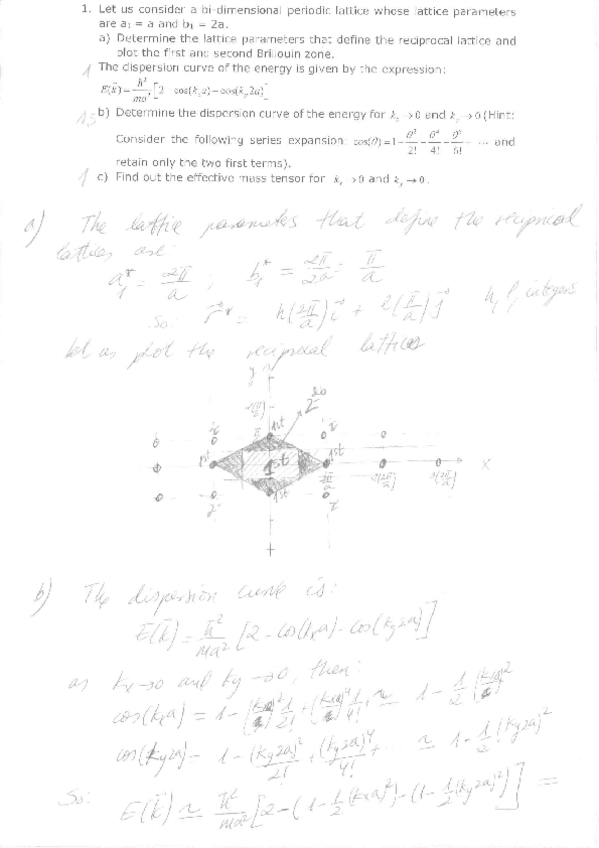 1. Let us consider a bi-dimensional periodic lattice whose lattice parameters
are a₁ = a and b₁ = 2a.
a) Determine the lattice parameters that define the reciprocal lattice and
plot the first and second Brillouin zone.
1 The dispersion curve of the energy is given by the expression:
E(k⃗) = ħ²/ma² [2 - cos(kₓa) - cos(k_y2a)]
1,5 b) Determine the dispersion curve of the energy for kₓ → 0 and k_y → 0 (Hint:
Consider the following series expansion: cos(θ) = 1 - θ²/2! - θ⁴/4! - θ⁶/6! - ... and
retain only the two first terms).
1 c) Find out the effective mass tensor for kₓ → 0 and k_y → 0.
a) The lattice parameters that define the reciprocal
lattices are:
a₁* = 2π/a ; b₁* = 2π/2a = π/a
So: r⃗* = h(2π/a)i⃗ + l(π/a)j⃗ h, l integers
let as plot the reciprocal lattices
y
1st 2
π/a
1st 1st 1st
x
2π/a 2(2π/a) 3(2π/a)
1st
b) The dispersion curve is:
E(k⃗) = ħ²/ma² [2 - cos(kₓa) - cos(k_y2a)]
as kₓ→0 and k_y→0, then:
cos(kₓa) = 1 - (kₓa)² 1/2! + (kₓa)⁴ 1/4! ≃ 1 - 1/2 (kₓa)²
cos(k_y2a) - 1 - (k_y2a)²/2! + (k_y2a)⁴/4! + ... ≃ 1 - 1/2 (k_y2a)²
So: E(k⃗) ≃ ħ²/ma² [2 - (1 - 1/2(kₓa)²) - (1 - 1/2(k_y2a)²)] =